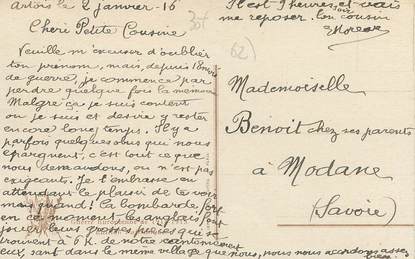 Artois le 2 janvier. 16
Chéri Petite Cousine
Veuille m'excuser d'oublier
ton prénom, mais, depuis 18 mois
de guerre, je commence par
perdre quelque fois la mémoire
Malgré ça je suis content
ou je suis et désire y rester
encore longtemps. Il y a
parfois quelques obus qui nous
épargnent, c'est tout ce que
nous demandons, ou n'est pas
exigeants. Je t'embrasse en
attendant le plaisir de te voir
mais quand! La bombarde fort
en ce moment les anglais font
jouer leurs grosses pièces qui se
trouvent à 6 K. de notre cantonnement
eux, sont dans le même village que nous, nous nous accordons assez
bien.
Il est 9 heures, et vais
me reposer. ton cousin
62)
Mademoiselle
Benoit chez ses parents
à Modane
(Savoie)